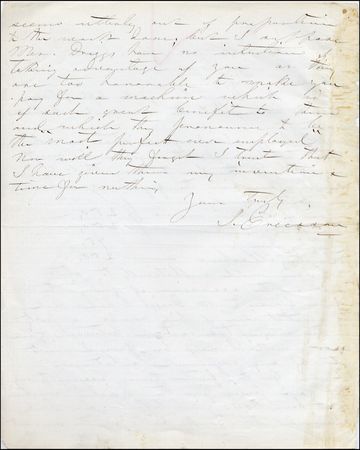 seems entirely out of proportion
to the work done, but I am
Messrs have no intention of
taking advantage of you as they
are too honorable to make you
pay for a machine which is
of such great benefit to
and which they pronounce to be
the most perfect ever employed
Nor will they forget I trust that
I have given them my invention &
time for nothing
Yours truly
J. Ericsson